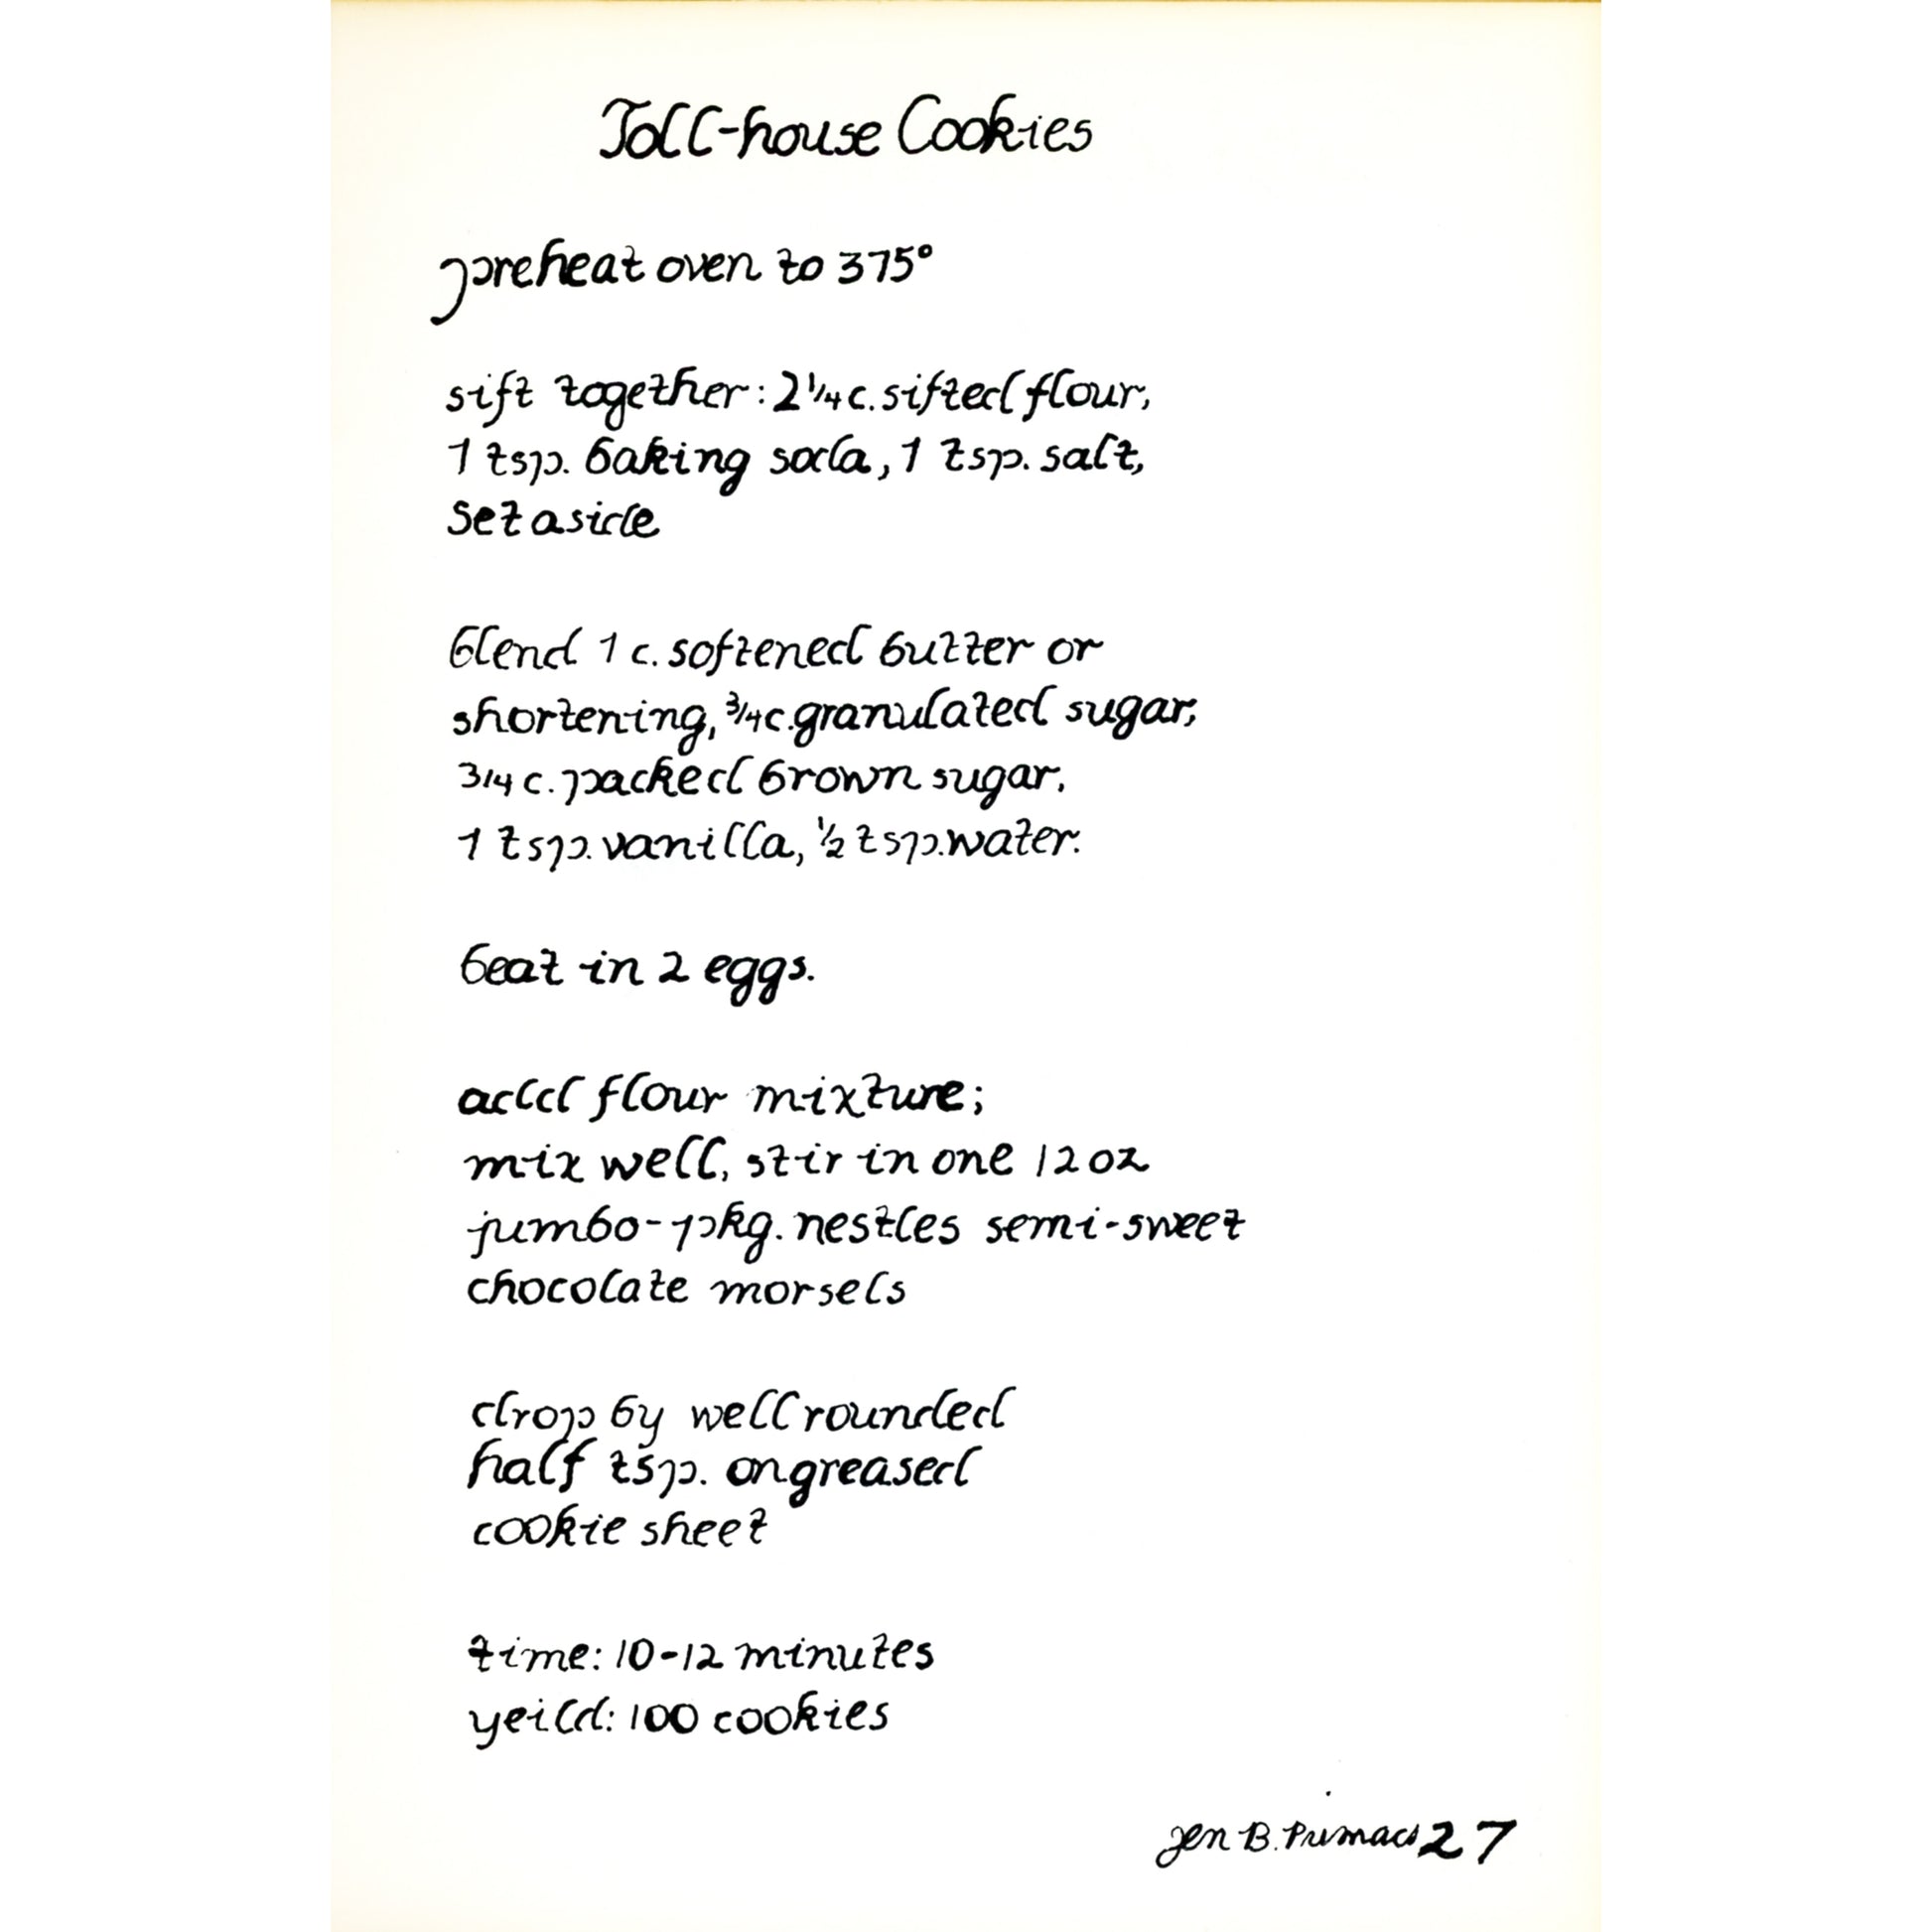 Toll-house Cookies
preheat oven to 375°
sift together: 2 1/4 c. sifted flour,
1 tsp. baking soda, 1 tsp. salt,
Set aside
blend 1 c. softened butter or
shortening, 3/4 c. granulated sugar,
3/4 c. packed brown sugar,
1 tsp. vanilla, 1/2 tsp. water.
beat in 2 eggs.
add flour mixture;
mix well, stir in one 12 oz
jumbo-pkg. nestles semi-sweet
chocolate morsels
drop by well rounded
half tsp. on greased
cookie sheet
time: 10-12 minutes
yeild: 100 cookies
Jen B. 27